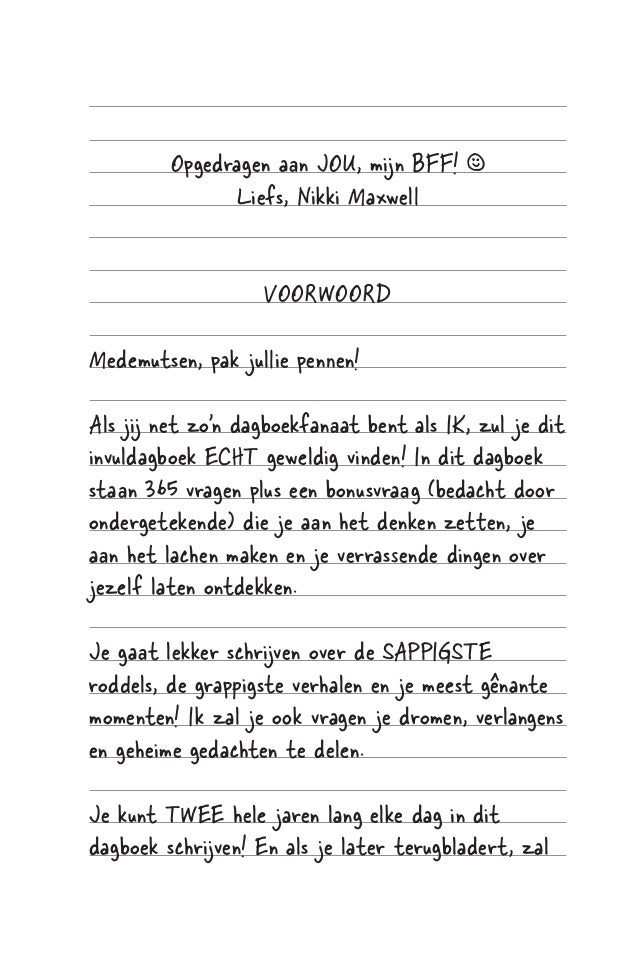 Opgedragen aan JOU, mijn BFF! ☺
Liefs, Nikki Maxwell
VOORWOORD
Medemutsen, pak jullie pennen!
Als jij net zo'n dagboekfanaat bent als IK, zul je dit
invuldagboek ECHT geweldig vinden! In dit dagboek
staan 365 vragen plus een bonusvraag (bedacht door
ondergetekende) die je aan het denken zetten, je
aan het lachen maken en je verrassende dingen over
jezelf laten ontdekken.
Je gaat lekker schrijven over de SAPPIGSTE
roddels, de grappigste verhalen en je meest gênante
momenten! Ik zal je ook vragen je dromen, verlangens
en geheime gedachten te delen.
Je kunt TWEE hele jaren lang elke dag in dit
dagboek schrijven! En als je later terugbladert, zal